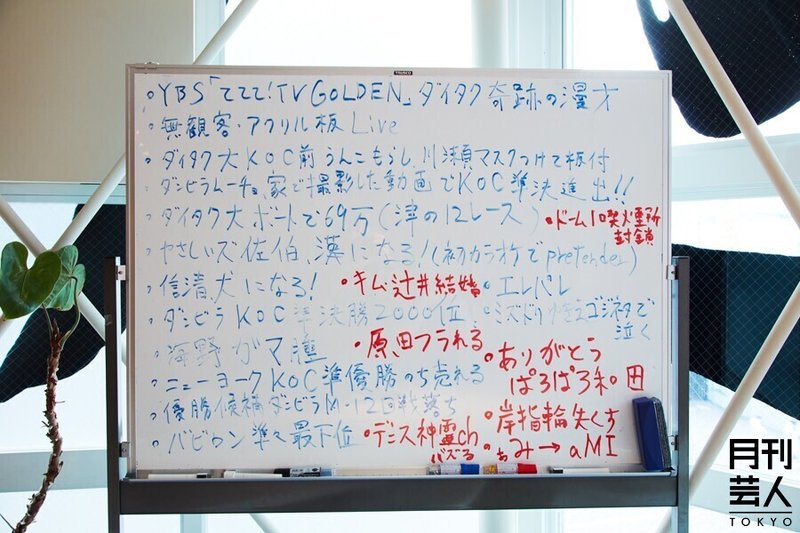 TRUSCO
・YBS「ててて!TV GOLDEN」ダイタク奇跡の漫才
・無観客・アクリル板 Live
・ダイタク大 KOC前うんこもらし、川瀬マスクつけて板付
・ダンビラムーチョ、家で撮影した動画でKOC準決進出!!
・ダイタク大 ボートで69万(津の12レース)
・ドーム10喫火煙所
封鎖
・やさしいズ佐伯、漢になる!(初カラオケでpretender)
・信清、犬になる!
・キム、辻井結婚
・エレパレ
・ダンビラKOC準決勝2000位
・ミズドリゴジネタで
泣く
・海野ガマ
・原田フラれる
・ありがとう
ぱろぱろ和田
・ニューヨークKOC準優勝のち売れる
・優勝候補ダンビラM-1 2回戦落ち
・岸指輪失くす
・バビロン準々最下位
・デニス神霊ch
バズる
・あみ→aMI
月刊
芸人
TOKYO